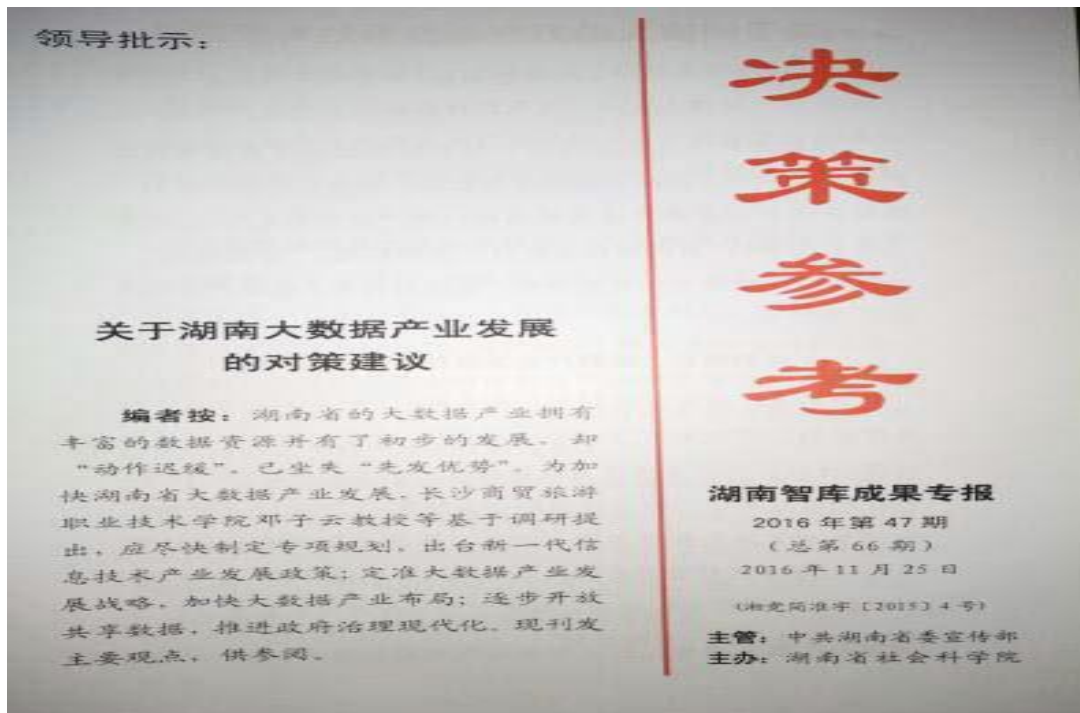 领导批示：
关于湖南大数据产业发展
的对策建议
编者按：湖南省的大数据产业拥有
丰富的数据资源并有了初步的发展，却
“动作迟缓”，已坐失“先发优势”。为加
快湖南省大数据产业发展，长沙商贸旅游
职业技术学院邓子云教授等基于调研提
出，应尽快制定专项规划，出台新一代信
息技术产业发展政策；定准大数据产业发
展战略，加快大数据产业布局；逐步开放
共享数据，推进政府治理现代化。现刊发
主要观点，供参阅。
决
策
参
考
湖南智库成果专报
2016 年第 47 期
（总第 66 期）
2016 年 11 月 25 日
（湘党简准字〔2015〕4 号）
主管：中共湖南省委宣传部
主办：湖南省社会科学院